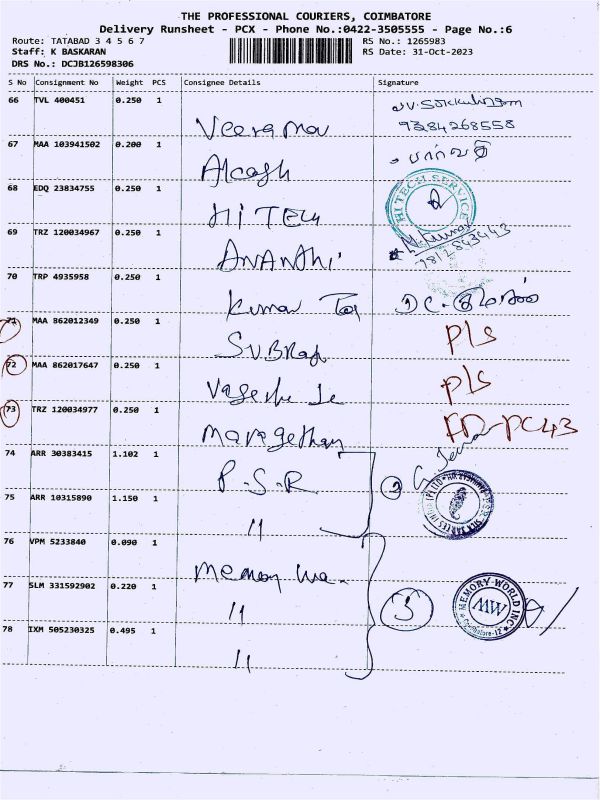 THE PROFESSIONAL COURIERS, COIMBATORE
Delivery Runsheet - PCX - Phone No.:0422-3505555 - Page No.:6
Route: TATABAD 3 4 5 6 7
RS No.: 1265983
Staff: K BASKARAN
RS Date: 31-Oct-2023
DRS No.: DCJB126598306
S No Consignment No Weight PCS Consignee Details Signature
66 TVL 400451 0.250 1
9384268558
67 MAA 103941502 0.200 1
68 EDQ 23834755 0.250 1 HI TECH
HI TECH SERVICE
69 TRZ 120034967 0.250 1 ANANDhi
9812843443
70 TRP 4935958 0.250 1 Kumar
71 MAA 862012349 0.250 1
Pls
72 MAA 862017647 0.250 1
Pls
73 TRZ 120034977 0.250 1
74 ARR 30383415 1.102 1 P.S.R
75 ARR 10315890 1.150 1 11
76 VPM 5233840 0.090 1 Memory
77 SLM 331592902 0.220 1 11
5
MEMORY WORLD INC
MW
Coimbatore-12
78 IXM 505230325 0.495 1 11